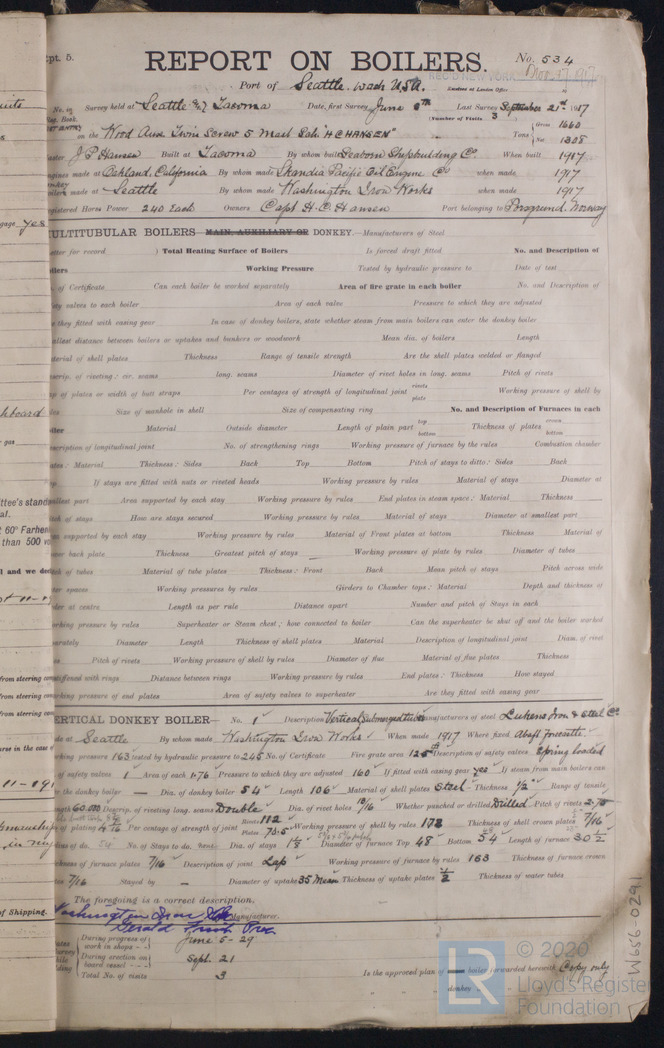 Rpt. 5.
REPORT ON BOILERS.
No. 534
Port of Seattle. wash U.S.A.
REC'D NEW YORK Nov. 27 1917
Survey held at Seattle & Tacoma Date, first Survey June 6th Last Survey September 21st 1917
(Number of Visits 3
on the Wood Aux Twin Screw 5 Mast Sch. "H C HANSEN" Tons Gross 1660 Net 1308
Master J P Hansen Built at Tacoma By whom built Seaborn Shipbuilding Co When built 1917
Engines made at Oakland, California By whom made Skandia Pacific Oil Engine Co when made 1917
Boilers made at Seattle By whom made Washington Iron Works when made 1917
Registered Horse Power 240 Each Owners Capt H. C. Hansen Port belonging to Porsgrund. Norway
MULTITUBULAR BOILERS MAIN, AUXILIARY OR DONKEY.—Manufacturers of Steel
letter for record ) Total Heating Surface of Boilers Is forced draft fitted No. and Description of
Boilers Working Pressure Tested by hydraulic pressure to Date of test
No. of Certificate Can each boiler be worked separately Area of fire grate in each boiler No. and Description of
safety valves to each boiler Area of each valve Pressure to which they are adjusted
Are they fitted with easing gear In case of donkey boilers, state whether steam from main boilers can enter the donkey boiler
Smallest distance between boilers or uptakes and bunkers or woodwork Mean dia. of boilers Length
Material of shell plates Thickness Range of tensile strength Are the shell plates welded or flanged
Descrip. of riveting: cir. seams long. seams Diameter of rivet holes in long. seams Pitch of rivets
Lap of plates or width of butt straps Per centages of strength of longitudinal joint rivets plate Working pressure of shell by
rules Size of manhole in shell Size of compensating ring No. and Description of Furnaces in each
boiler Material Outside diameter Length of plain part top bottom Thickness of plates crown bottom
Description of longitudinal joint No. of strengthening rings Working pressure of furnace by the rules Combustion chamber
plates: Material Thickness: Sides Back Top Bottom Pitch of stays to ditto: Sides Back
Top If stays are fitted with nuts or riveted heads Working pressure by rules Material of stays Diameter at
smallest part Area supported by each stay Working pressure by rules End plates in steam space: Material Thickness
Pitch of stays How are stays secured Working pressure by rules Material of stays Diameter at smallest part
Area supported by each stay Working pressure by rules Material of Front plates at bottom Thickness Material of
Lower back plate Thickness Greatest pitch of stays Working pressure of plate by rules Diameter of tubes
Pitch of tubes Material of tube plates Thickness: Front Back Mean pitch of stays Pitch across wide
water spaces Working pressures by rules Girders to Chamber tops: Material Depth and thickness of
girder at centre Length as per rule Distance apart Number and pitch of Stays in each
Working pressure by rules Superheater or Steam chest; how connected to boiler Can the superheater be shut off and the boiler worked
separately Diameter Length Thickness of shell plates Material Description of longitudinal joint Diam. of rivet
holes Pitch of rivets Working pressure of shell by rules Diameter of flue Material of flue plates Thickness
If stiffened with rings Distance between rings Working pressure by rules End plates: Thickness How stayed
Working pressure of end plates Area of safety valves to superheater Are they fitted with easing gear
VERTICAL DONKEY BOILER— No. 1 Description Vertical Submerged tube Manufacturers of steel Lukens Iron & Steel Co
Made at Seattle By whom made Washington Iron Works When made 1917 Where fixed Abaft forecastle
Working pressure 163 tested by hydraulic pressure to 245 No. of Certificate Fire grate area 12.5 Description of safety valves Spring loaded
No. of safety valves 1 Area of each 1.76 Pressure to which they are adjusted 160 If fitted with easing gear yes If steam from main boilers can
enter the donkey boiler — Dia. of donkey boiler 54 Length 106 Material of shell plates Steel Thickness 1/2" Range of tensile
strength 60.000 Descrip. of riveting long. seams Double Dia. of rivet holes 13/16 Whether punched or drilled Drilled Pitch of rivets 2.75
Lap of plating 4 7/16 Per centage of strength of joint Rivets 112 Plates 70.5 Working pressure of shell by rules 172 Thickness of shell crown plates 7/16
Radius of do. 54" No. of Stays to do. none Dia. of stays 1 1/8 Diameter of furnace Top 48 Bottom 54 Length of furnace 30 1/2
Thickness of furnace plates 7/16 Description of joint Lap Working pressure of furnace by rules 163 Thickness of furnace crown
plates 7/16 Stayed by — Diameter of uptake 35 Mean Thickness of uptake plates 1/2 Thickness of water tubes
The foregoing is a correct description,
Washington Iron Works Manufacturer.
Gerald Frink Pres
During progress of work in shops - - June 5-29
During erection on board vessel - - - Sept. 21
Total No. of visits 3
Is the approved plan of — boiler forwarded herewith Copy only
donkey
W656-0291
© 2020
LR
Lloyd's Register
Foundation